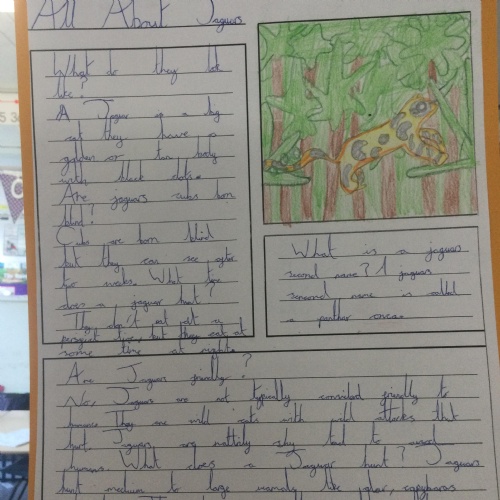 All About Jaguars
What do they look
like?
A Jaguar is a big
cat they have a
golden or tan body
with black dots.
Are jaguars cubs born
blind?
Cubs are born blind
but they can see after
two weeks. What time
does a jaguar hunt?
They don't eat at a
time, but they eat at
some time at night.
What is a jaguars
second name? A jaguars
second name is called
a panther onca.
Are Jaguars friendly?
No, Jaguars are not typically considered friendly to
humans. They are wild cats with wild attacks that
hurt. Jaguars are shy tend to avoid
humans. What does a Jaguar hunt? Jaguars
hunt medium to large mammals like deer, capybaras